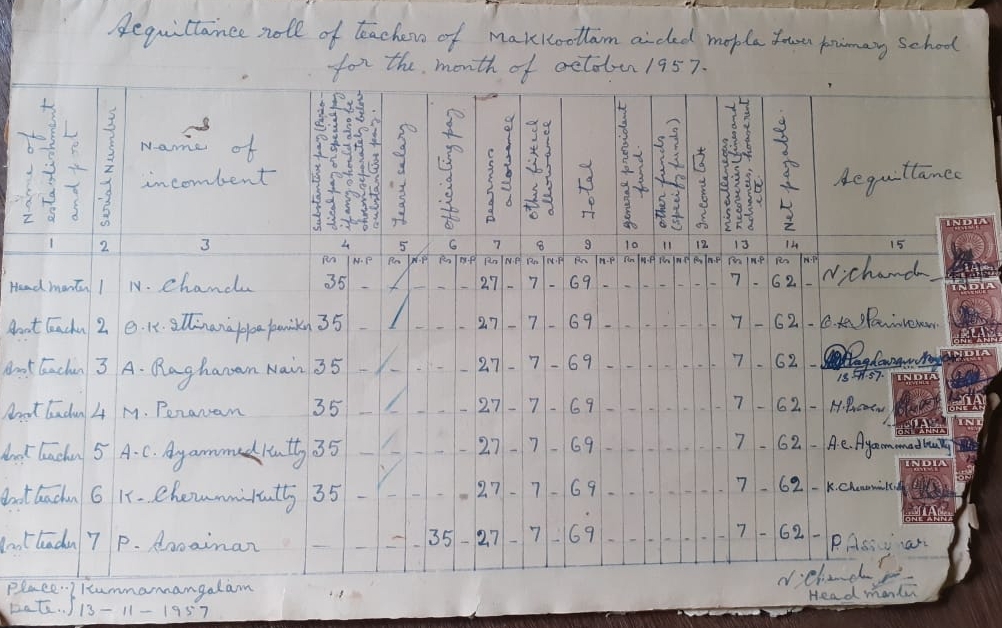 Acquittance roll of teachers of Makkoottam aided mopla Lower primary School
for the month of october 1957.
Name of establishment and post
Serial Number
Name of incombent
Substantive pay (Perio-
dical pay or special pay
if any should also be
shown separately below
substantive pay.
Leave salary
officiating pay
Dearness allowance
Other fixed allowance
Total
general provident fund.
other funds (specify funds)
Income tax
miscellaneous recoveries (fines and advances, house rent etc.
Net payable.
Acquittance
1 2 3 4 5 6 7 8 9 10 11 12 13 14 15
Rs N.P Rs N.P Rs N.P Rs N.P Rs N.P Rs N.P Rs N.P Rs N.P Rs N.P Rs N.P Rs N.P
Head master 1 N. Chandu 35 - - - - - 27 - 7 - 69 - - - - - - - 7 - 62 - N. Chandu
Asst teacher 2 O.K. Ittirarappa paniker 35 - - - - - 27 - 7 - 69 - - - - - - - 7 - 62 -
Asst teacher 3 A. Raghavan Nair 35 - - - - - 27 - 7 - 69 - - - - - - - 7 - 62 -
13-11-57.
Asst teacher 4 M. Peravan 35 - - - - - 27 - 7 - 69 - - - - - - - 7 - 62 -
Asst teacher 5 A.C. Ayammed Kutty 35 - - - - - 27 - 7 - 69 - - - - - - - 7 - 62 - A.C. Ayammed Kutty
Asst teacher 6 K. Cherunni Kutty 35 - - - - - 27 - 7 - 69 - - - - - - - 7 - 62 - K. Cherunni Kutty
Asst teacher 7 P. Assainar - - - - 35 - 27 - 7 - 69 - - - - - - - 7 - 62 - P. Assainar
INDIA
REVENUE
INDIA
REVENUE
1A
ONE ANNA
INDIA
INDIA
REVENUE
1A
ONE ANNA
INDIA
REVENUE
1A
ONE ANNA
Place..} Kunnamangalam
Date..} 13-11-1957
N. Chandu
Head master